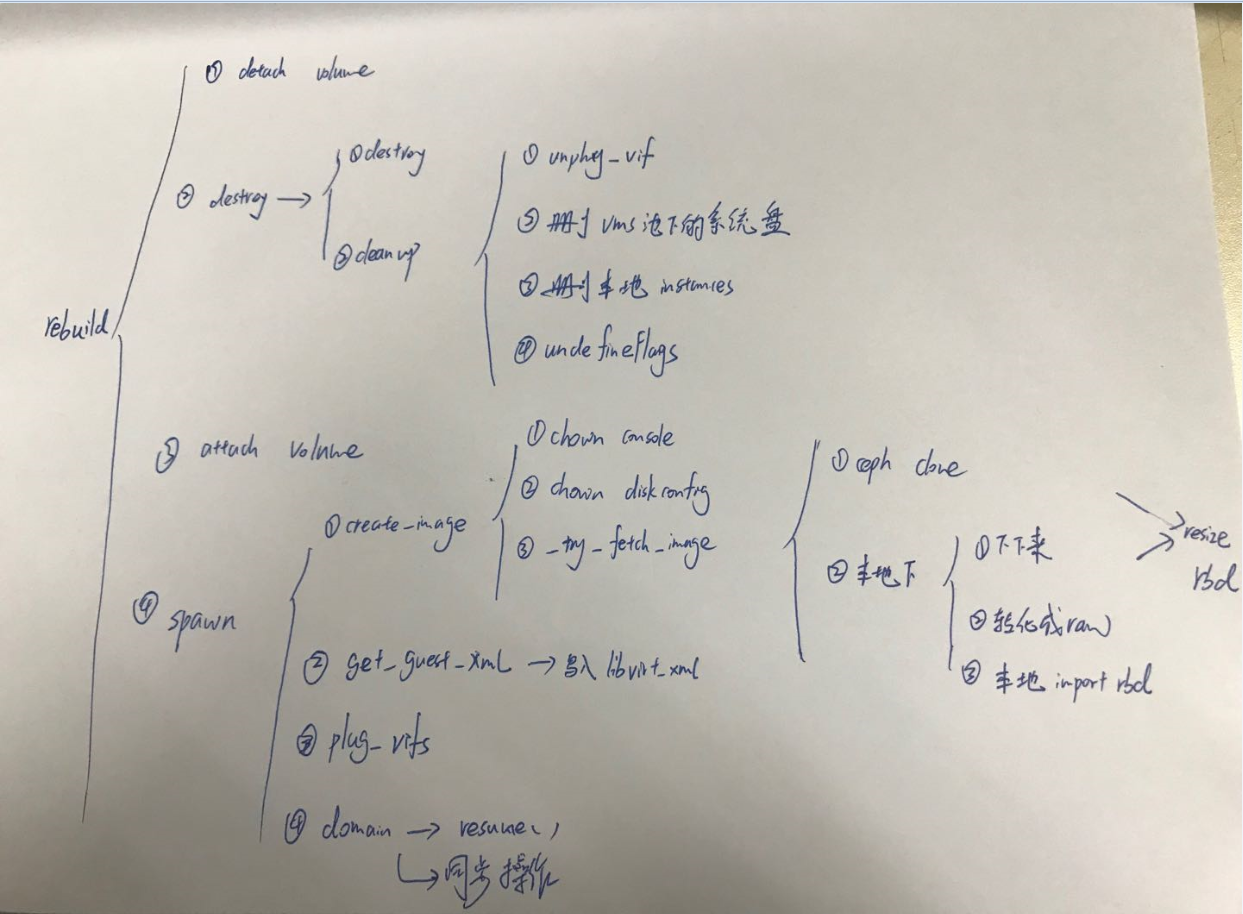 rebuild
① detach volume
② destroy →
① destroy
② cleanup
① unplug_vif
② 删 vms 池下的系统盘
③ 删本地 instances
④ undefineFlags
③ attach volume
④ spawn
① create_image
① chown console
② chown diskconfig
③ _try_fetch_image
① ceph clone
② 本地下
① 下下来
② 转化成raw
③ 本地 import rbd
resize
rbd
② get_guest_xml → 写入 libvirt_xml
③ plug_vifs
④ domain → resume()
↳ 同步操作